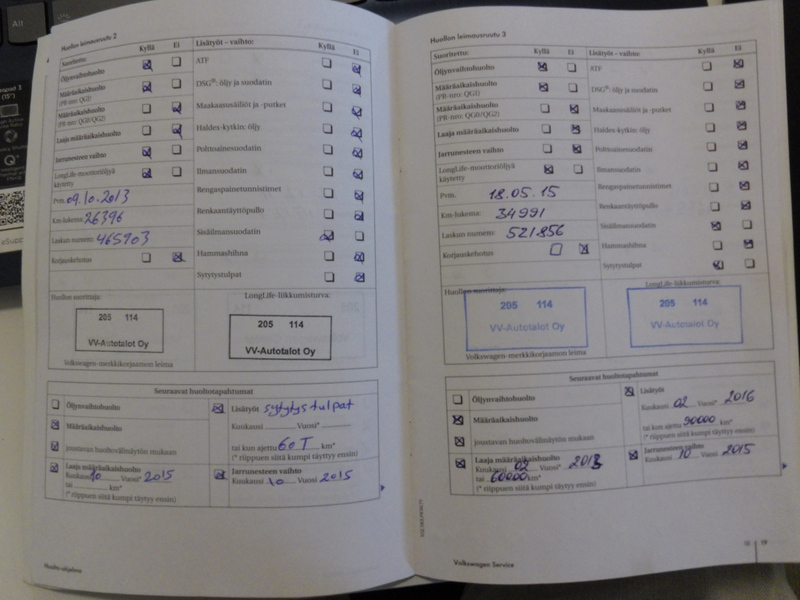 Alt
Huollon leimausruutu 2
Suoritettu:
Kyllä
Ei
Lisätyöt – vaihto:
Kyllä
Ei
Öljynvaihtohuolto
Määräaikaishuolto
(PR-nro: QG1)
Määräaikaishuolto
(PR-nro: QG0/QG2)
Laaja määräaikaishuolto
Jarrunesteen vaihto
LongLife-moottoriöljyä
käytetty
Pvm. 09.10.2013
Km-lukema: 26396
Laskun numero: 465903
Korjauskehotus
ATF
DSG®: öljy ja suodatin
Maakaasusäiliöt ja -putket
Haldex-kytkin: öljy
Polttoainesuodatin
Ilmansuodatin
Rengaspainetunnistimet
Renkaantäyttöpullo
Sisäilmansuodatin
Hammashihna
Sytytystulpat
Huollon suorittaja:
LongLife-liikkumisturva:
205 114
VV-Autotalot Oy
205 114
VV-Autotalot Oy
Volkswagen-merkkikorjaamon leima
Seuraavat huoltotapahtumat
Öljynvaihtohuolto
Määräaikaishuolto
joustavan huoltovälinäytön mukaan
Laaja määräaikaishuolto
Kuukausi 10 Vuosi* 2015
tai km*
(* riippuen siitä kumpi täyttyy ensin)
Lisätyöt sytytystulpat
Kuukausi Vuosi*
tai kun ajettu 60 T km*
(* riippuen siitä kumpi täyttyy ensin)
Jarrunesteen vaihto
Kuukausi 10 Vuosi 2015
Huolto-ohjelma
Huollon leimausruutu 3
Suoritettu:
Kyllä
Ei
Lisätyöt – vaihto:
Kyllä
Ei
Öljynvaihtohuolto
Määräaikaishuolto
(PR-nro: QG1)
Määräaikaishuolto
(PR-nro: QG0/QG2)
Laaja määräaikaishuolto
Jarrunesteen vaihto
LongLife-moottoriöljyä
käytetty
Pvm. 18.05.15
Km-lukema: 34991
Laskun numero: 521856
Korjauskehotus
ATF
DSG®: öljy ja suodatin
Maakaasusäiliöt ja -putket
Haldex-kytkin: öljy
Polttoainesuodatin
Ilmansuodatin
Rengaspainetunnistimet
Renkaantäyttöpullo
Sisäilmansuodatin
Hammashihna
Sytytystulpat
Huollon suorittaja:
LongLife-liikkumisturva:
205 114
VV-Autotalot Oy
205 114
VV-Autotalot Oy
Volkswagen-merkkikorjaamon leima
Seuraavat huoltotapahtumat
Öljynvaihtohuolto
Määräaikaishuolto
joustavan huoltovälinäytön mukaan
Laaja määräaikaishuolto
Kuukausi 02 Vuosi*
tai 60000 km*
(* riippuen siitä kumpi täyttyy ensin)
Lisätyöt
Kuukausi 02 Vuosi* 2016
tai kun ajettu 90000 km*
(* riippuen siitä kumpi täyttyy ensin)
Jarrunesteen vaihto
Kuukausi 10 Vuosi 2015
Volkswagen Service